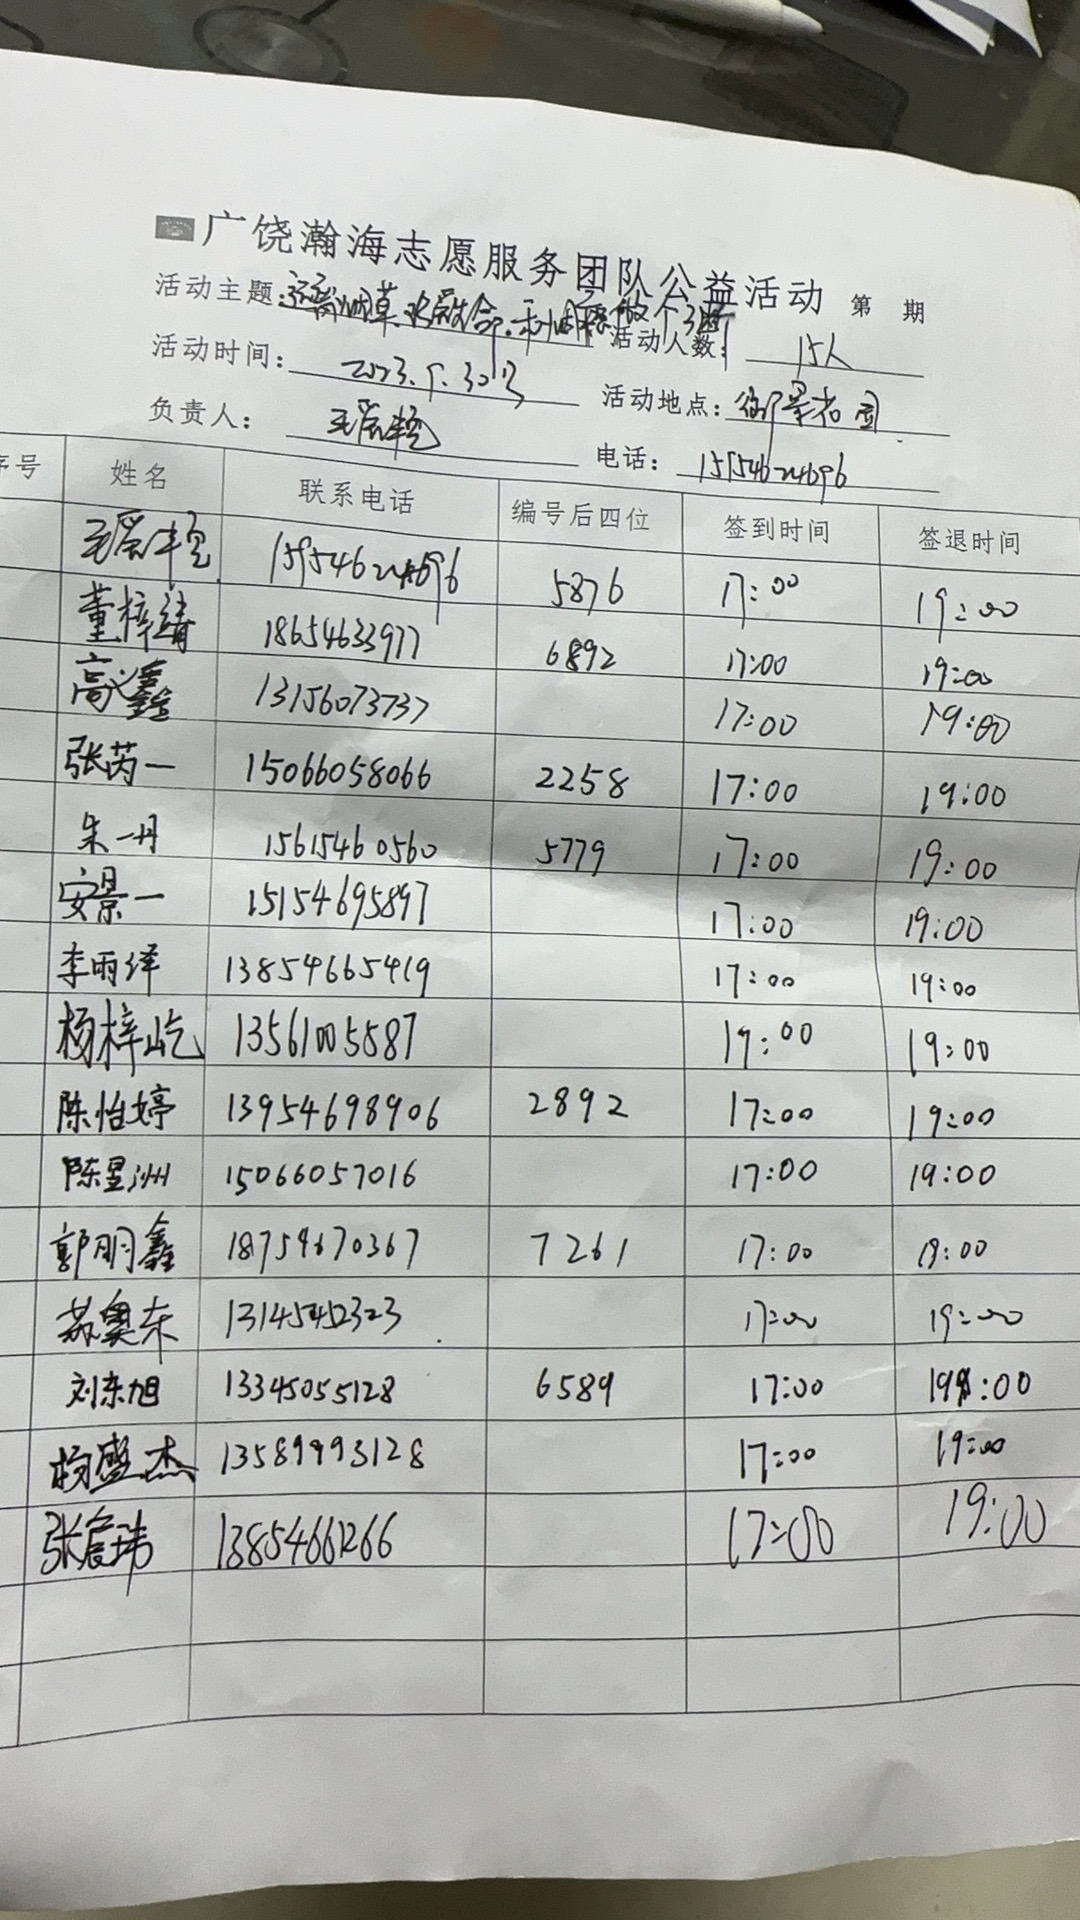 广饶瀚海志愿服务团队公益活动 第 期
活动主题: 活动人数: 15人
活动时间: 2023.5.30号 活动地点:
负责人: 电话: 15954624696
序号 姓名 联系电话 编号后四位 签到时间 签退时间
15954624696 5876 17:00 19:00
董梓靖 18654633977 6892 17:00 19:00
高鑫 13156073737 17:00 19:00
张芮一 15066058066 2258 17:00 19:00
朱一丹 15615460560 5779 17:00 19:00
安景一 15154695897 17:00 19:00
李雨泽 13854665419 17:00 19:00
杨梓屹 13561005587 19:00 19:00
陈怡婷 13954698906 2892 17:00 19:00
陈星洲 15066057016 17:00 19:00
郭明鑫 18754670367 7261 17:00 19:00
苏奥东 13145452323 17:00 19:00
刘东旭 13345055128 6589 17:00 19:00
杨盛杰 13589993128 17:00 19:00
张宸玮 13854661266 17:00 19:00